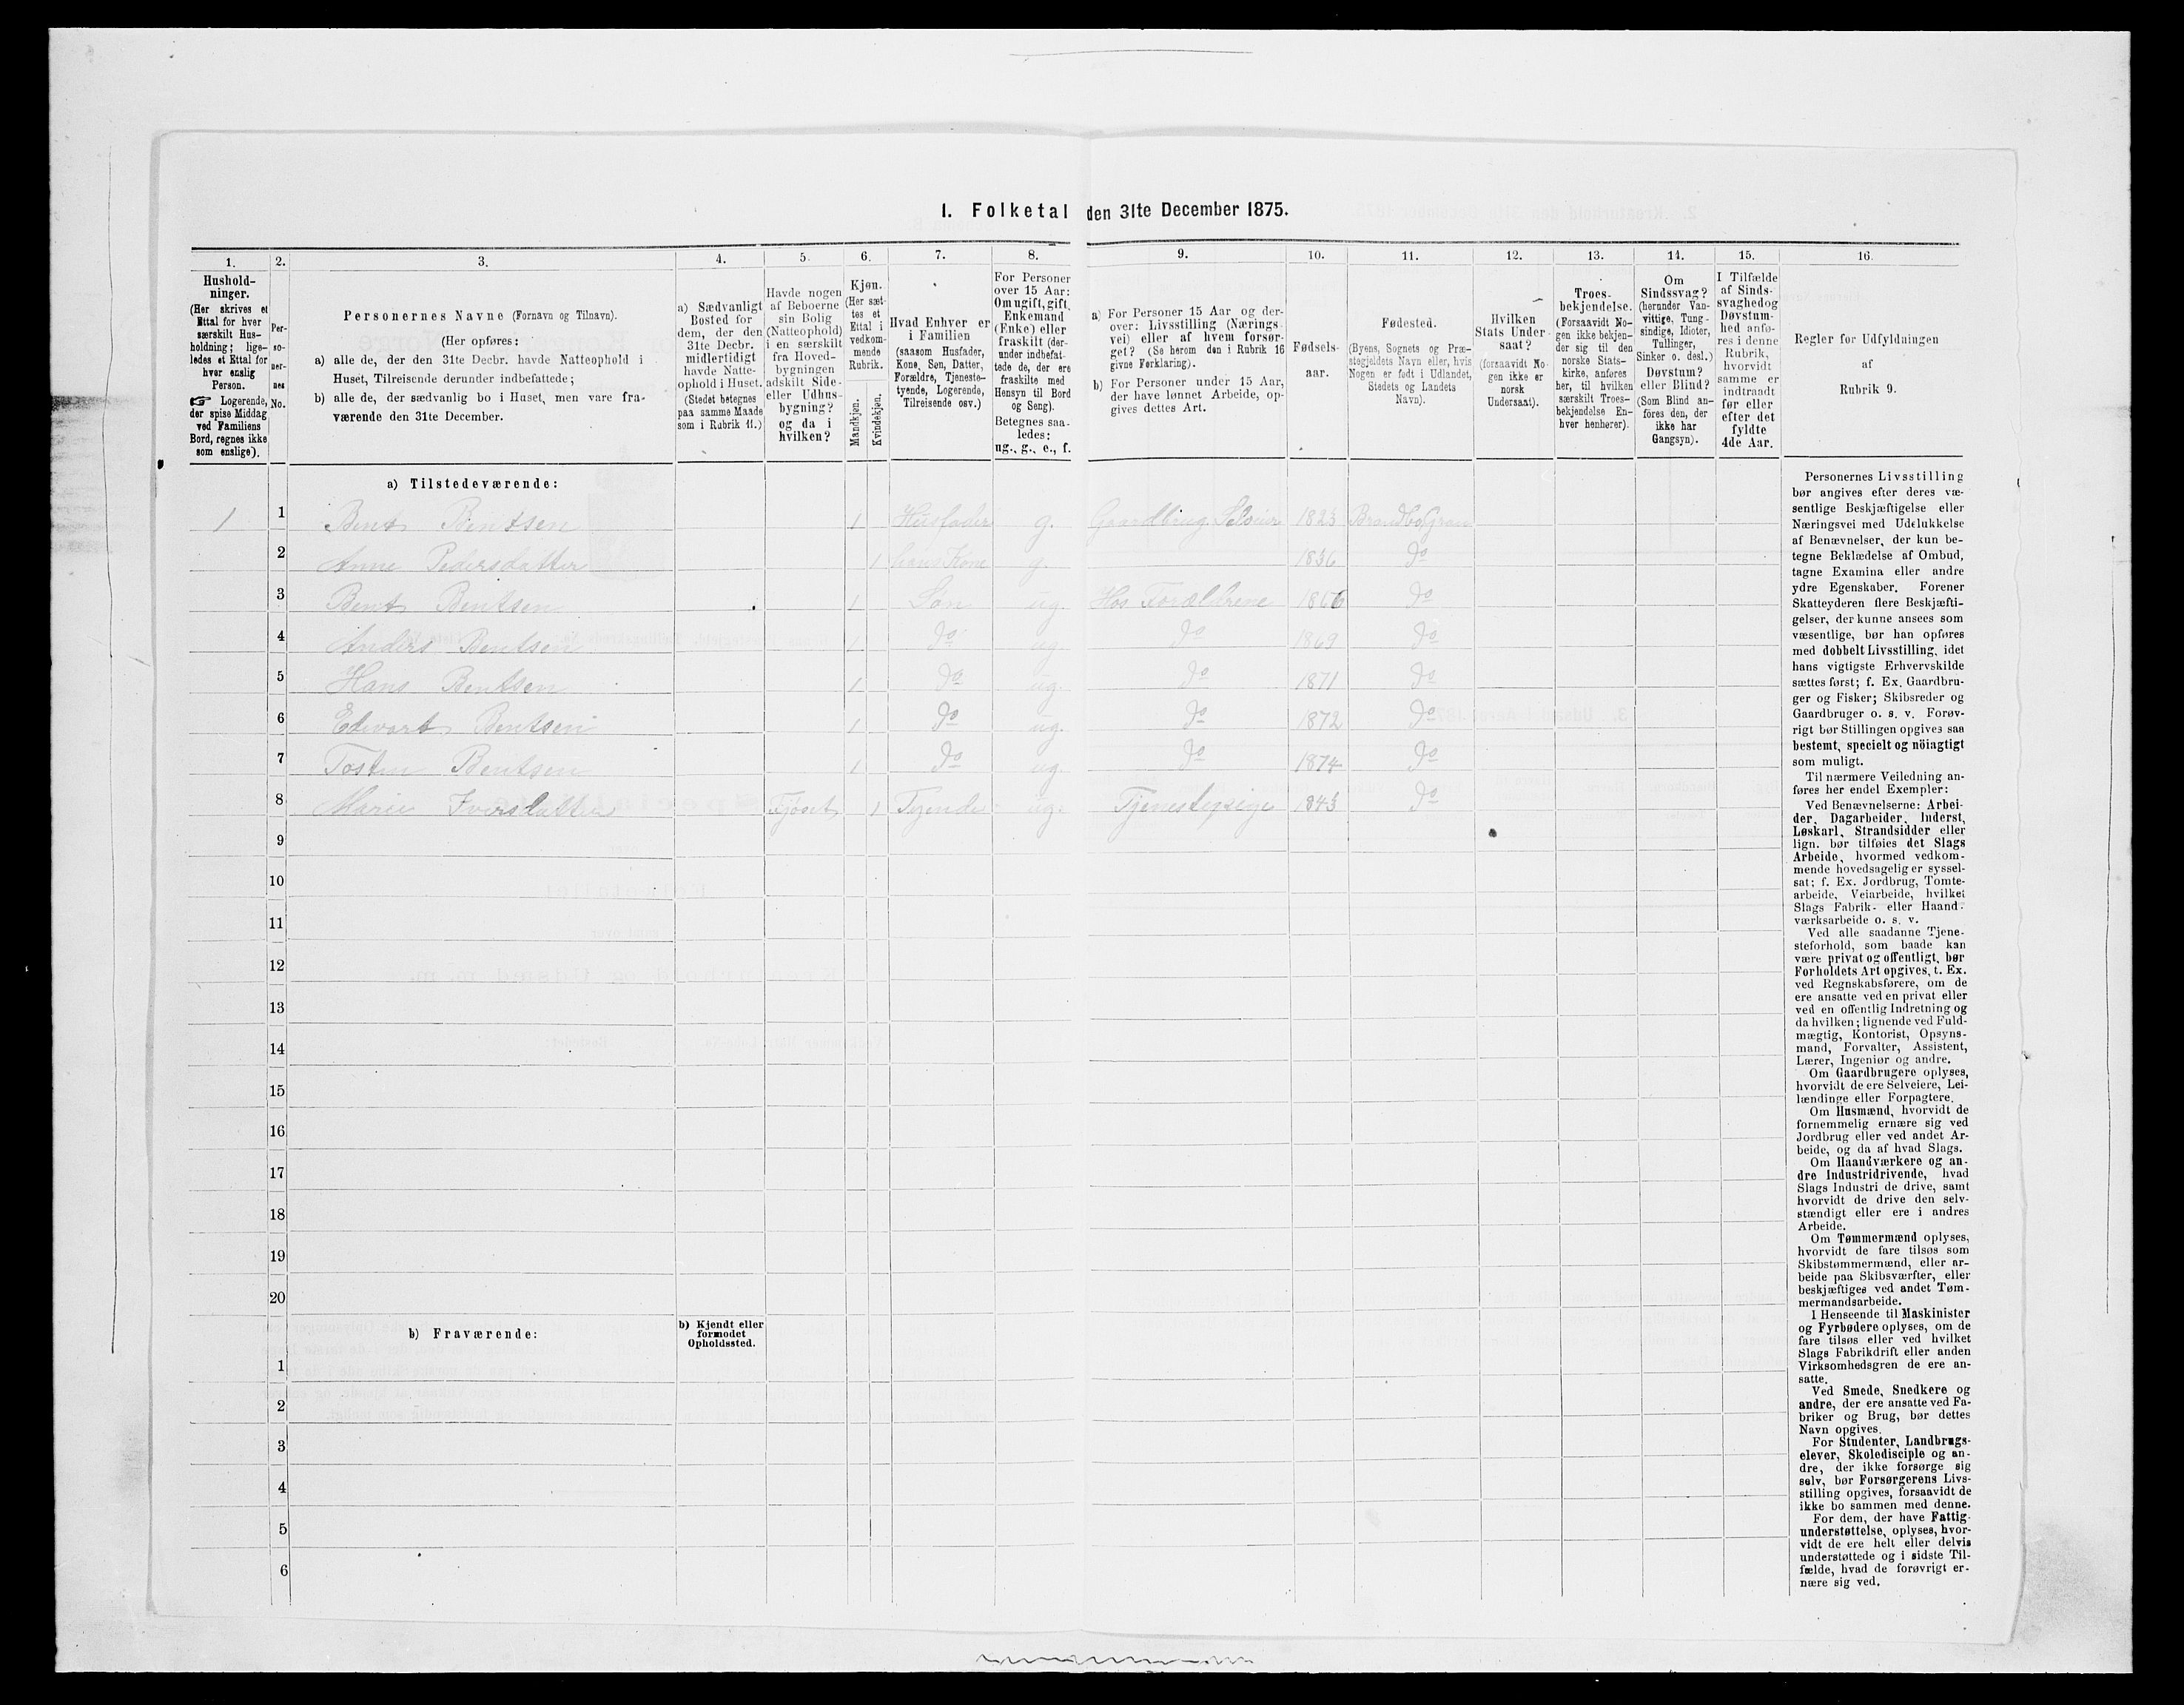 I. Folketal den 31te December 1875.
1.
Hushold-
ninger.
(Her skrives et
Ettal for hver
særskilt Hus-
holdning; lige-
ledes et Ettal for
hver enslig
Person.
☞ Logerende,
der spise Middag
ved Familiens
Bord, regnes ikke
som enslige).
2.
Per-
so-
ner-
nes
No.
3.
Personernes Navne (Fornavn og Tilnavn).
(Her opføres:
a) alle de, der den 31te Decbr. havde Natteophold i
Huset, Tilreisende derunder indbefattede;
b) alle de, der sædvanlig bo i Huset, men vare fra-
værende den 31te December.
4.
a) Sædvanligt
Bosted for
dem, der den
31te Decbr.
midlertidigt
havde Natte-
ophold i Huset.
(Stedet betegnes
paa samme Maade
som i Rubrik 11.)
5.
Havde nogen
af Beboerne
sin Bolig
(Natteophold)
i en særskilt
fra Hoved-
bygningen
adskilt Side-
eller Udhus-
bygning?
og da i
hvilken?
6.
Kjøn.
(Her sæt-
tes et
Ettal i
vedkom-
mende
Rubrik.
Mandkjøn.
Kvindekjøn.
7.
Hvad Enhver er
i Familien
(saasom Husfader,
Kone, Søn, Datter,
Forældre, Tjeneste-
tyende, Logerende,
Tilreisende osv.)
8.
For Personer
over 15 Aar:
Om ugift, gift,
Enkemand
(Enke) eller
fraskilt (der-
under indbefat-
tede de, der ere
fraskilte med
Hensyn til Bord
og Seng).
Betegnes saa-
ledes:
ug., g., e., f.
9.
a) For Personer 15 Aar og der-
over: Livsstilling (Nærings-
vei) eller af hvem forsør-
get? (Se herom den i Rubrik 16
givne Forklaring).
b) For Personer under 15 Aar,
der have lønnet Arbeide, op-
gives dettes Art.
10.
Fødsels-
aar.
11.
Fødested.
(Byens, Sognets og Præ-
stegjeldets Navn eller, hvis
Nogen er født i Udlandet,
Stedets og Landets
Navn).
12.
Hvilken
Stats Under-
saat?
(forsaavidt No-
gen ikke er
norsk
Undersaat).
13.
Troes-
bekjendelse.
(Forsaavidt No-
gen ikke bekjen-
der sig til den
norske Stats-
kirke, anføres
her, til hvilken
særskilt Troes-
bekjendelse En-
hver henhører).
14.
Om
Sindssvag?
(herunder Van-
vittige, Tung-
sindige, Idioter,
Tullinger,
Sinker o. desl.)
Døvstum?
eller Blind?
(Som Blind an-
føres den, der
ikke har
Gangsyn).
15.
I Tilfælde
af Sinds-
svaghed og
Døvstum-
hed anfø-
res i denne
Rubrik,
hvorvidt
samme er
indtraadt
før eller
efter det
fyldte
4de Aar.
16.
Regler for Udfyldningen
af
Rubrik 9.
a) Tilstedeværende:
1 1 Bent Bentsen 1 Husfader g. Gaardbrug. Selveier 1823 Brandbo Gran
2 Anne Pedersdatter 1 hans Kone g. 1836 do
3 Bent Bentsen 1 Søn ug. Hos Forældrene 1866 do
4 Anders Bentsen 1 do ug. do 1869 do
5 Hans Bentsen 1 do ug. do 1871 do
6 Edvart Bentsen 1 do ug. do 1872 do
7 Tosten Bentsen 1 do ug. do 1874 do
8 Marie Iversdatter Fjøset 1 Tyende ug. Tjenestepige 1843 do
9
10
11
12
13
14
15
16
17
18
19
20
b) Fraværende:
b) Kjendt eller
formodet
Opholdssted.
1
2
3
4
5
6
Personernes Livsstilling
bør angives efter deres væ-
sentlige Beskjæftigelse eller
Næringsvei med Udelukkelse
af Benævnelser, der kun be-
tegne Beklædelse af Ombud,
tagne Examina eller andre
ydre Egenskaber. Forener
Skatteyderen flere Beskjæfti-
gelser, der kunne ansees som
væsentlige, bør han opføres
med dobbelt Livsstilling, idet
hans vigtigste Erhvervskilde
sættes først; f. Ex. Gaardbru-
ger og Fisker; Skibsreder og
Gaardbruger o. s. v. Forøv-
rigt bør Stillingen opgives saa
bestemt, specielt og nöiagtigt
som muligt.
Til nærmere Veiledning an-
føres her endel Exempler:
Ved Benævnelserne: Arbei-
der, Dagarbeider, Inderst,
Løskarl, Strandsidder eller
lign. bør tilføies det Slags
Arbeide, hvormed vedkom-
mende hovedsagelig er syssel-
sat; f. Ex. Jordbrug, Tomte-
arbeide, Veiarbeide, hvilket
Slags Fabrik- eller Haand-
værksarbeide o. s. v.
Ved alle saadanne Tjene-
steforhold, som baade kan
være privat og offentligt, bør
Forholdets Art opgives, t. Ex.
ved Regnskabsførere, om de
ere ansatte ved en privat eller
ved en offentlig Indretning og
da hvilken; lignende ved Fuld-
mægtig, Kontorist, Opsyns-
mand, Forvalter, Assistent,
Lærer, Ingeniør og andre.
Om Gaardbrugere oplyses,
hvorvidt de ere Selveiere, Lei-
lændinge eller Forpagtere.
Om Husmænd, hvorvidt de
fornemmelig ernære sig ved
Jordbrug eller ved andet Ar-
beide, og da af hvad Slags.
Om Haandværkere og an-
dre Industridrivende, hvad
Slags Industri de drive, samt
hvorvidt de drive den selv-
stændigt eller ere i andres
Arbeide.
Om Tømmermænd oplyses,
hvorvidt de fare tilsøs som
Skibstømmermænd, eller ar-
beide paa Skibsværfter, eller
beskjæftiges ved andet Tøm-
mermandsarbeide.
I Henseende til Maskinister
og Fyrbødere oplyses, om de
fare tilsøs eller ved hvilket
Slags Fabrikdrift eller anden
Virksomhedsgren de ere an-
satte.
Ved Smede, Snedkere og
andre, der ere ansatte ved Fa-
briker og Brug, bør dettes
Navn opgives.
For Studenter, Landbrugs-
elever, Skoledisciple og an-
dre, der ikke forsørge sig
selv, bør Forsørgerens Livs-
stilling opgives, forsaavidt de
ikke bo sammen med denne.
For dem, der have Fattig-
understøttelse, oplyses, hvor-
vidt de ere helt eller delvis
understøttede og i sidste Til-
fælde, hvad de forøvrigt er-
nære sig ved.